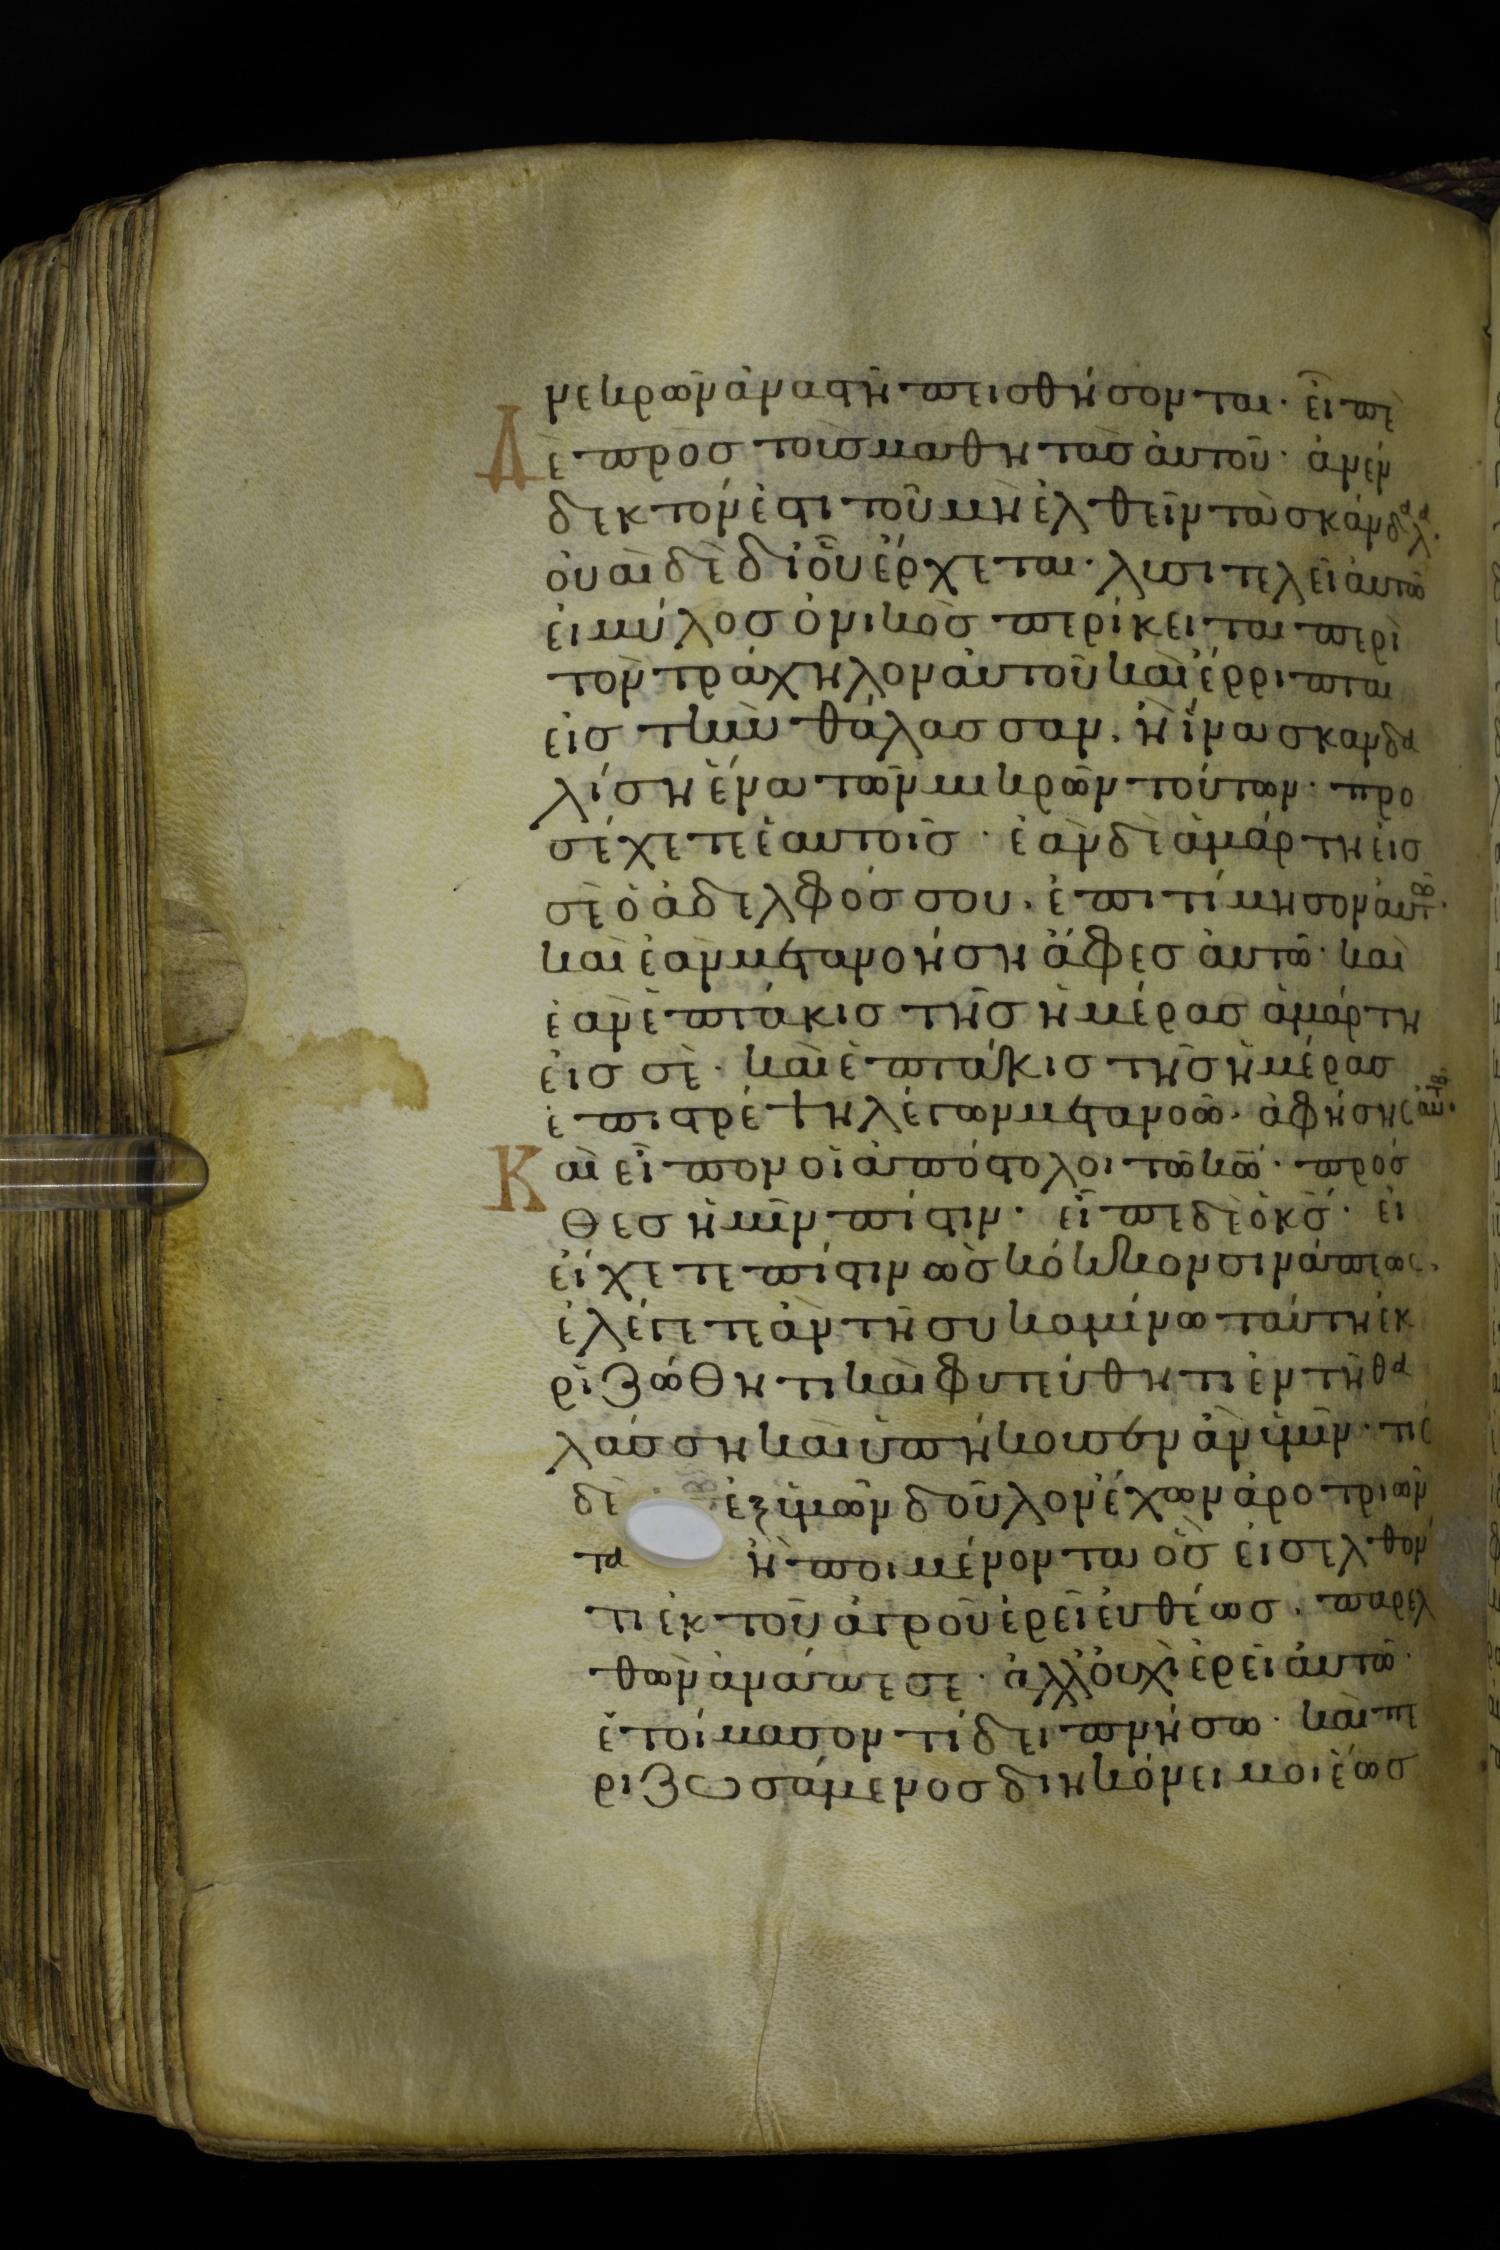 νεκρῶν ἀναστῆ πεισθήσονται· εἶπε
Δὲ προσ τοὺσ μαθητὰσ ἀυτοῦ· ἀνέν
δεκτόν ἐστι τοῦ μὴ ἐλθεῖν τὰ σκάνδαλα·
ὀυαὶ δὲ δι ὁῦ ἔρχεται· λυσιτελεῖ ἀυτῶ
ἐι μύλοσ ὀνικὸσ περίκειται περὶ
τὸν τράχηλον ἀυτοῦ καὶ ἔρριπται
ἐισ τὴν θάλασσαν. ἢ ἵνα σκανδα
λίση ἕνα τῶν μικρῶν τούτων· προ
σέχετε ἑαυτοῖσ· ἐὰν δὲ ἁμάρτη ἐισ
σὲ ὁ ἀδελφόσ σου. ἐπιτίμησον ἀυτῶ·
καὶ ἐὰν μετανοήση ἄφεσ ἀυτῶ· καὶ
ἐὰν ἑπτάκισ τῆσ ἡμέρασ ἁμάρτη
ἐισ σὲ· καὶ ἑπτάκισ τῆσ ἡμέρασ
ἐπιστρέψη λέγων μετανοῶ· ἀφήσησ ἀυτῶ·
Καὶ εἶπον οἱ ἀπόστολοι τῶ κῶ· πρόσ
θεσ ἡμῖν πίστιν· εἶπε δὲ ὁ κσ· ἐι
ἔιχετε πίστιν ὡσ κόκκον σινάπεως,
ἐλέγετε ἂν τῆ συκαμίνω ταύτη ἐκ
ριζώθητι καὶ φυτεύθητι ἐν τῆ θα
λάσση καὶ ὑπήκουσεν ἂν ὑμῖν· τίσ
δὲ ἐξ ὑμῶν δοῦλον ἔχων ἀροτριῶν
τα ἢ ποιμένοντα ὃσ ἐισελθόν
τι ἐκ τοῦ ἀγροῦ ἐρεῖ ἐυθέωσ· παρελ
θὼν ἀνάπεσε· ἀλλ ὀυχὶ ἐρεῖ ἀυτῶ·
ἑτοίμασον τί δειπνήσω· καὶ πε
ριζωσάμενοσ διακόνει μοι ἕωσ